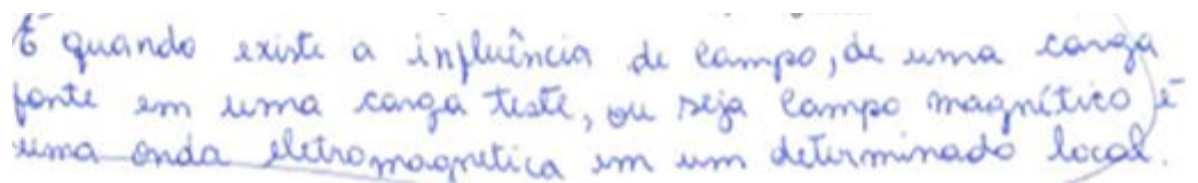 É quando existe a influência de campo, de uma carga
fonte em uma carga teste, ou seja campo magnítico é
uma onda eletromagnetica em um determinado local.